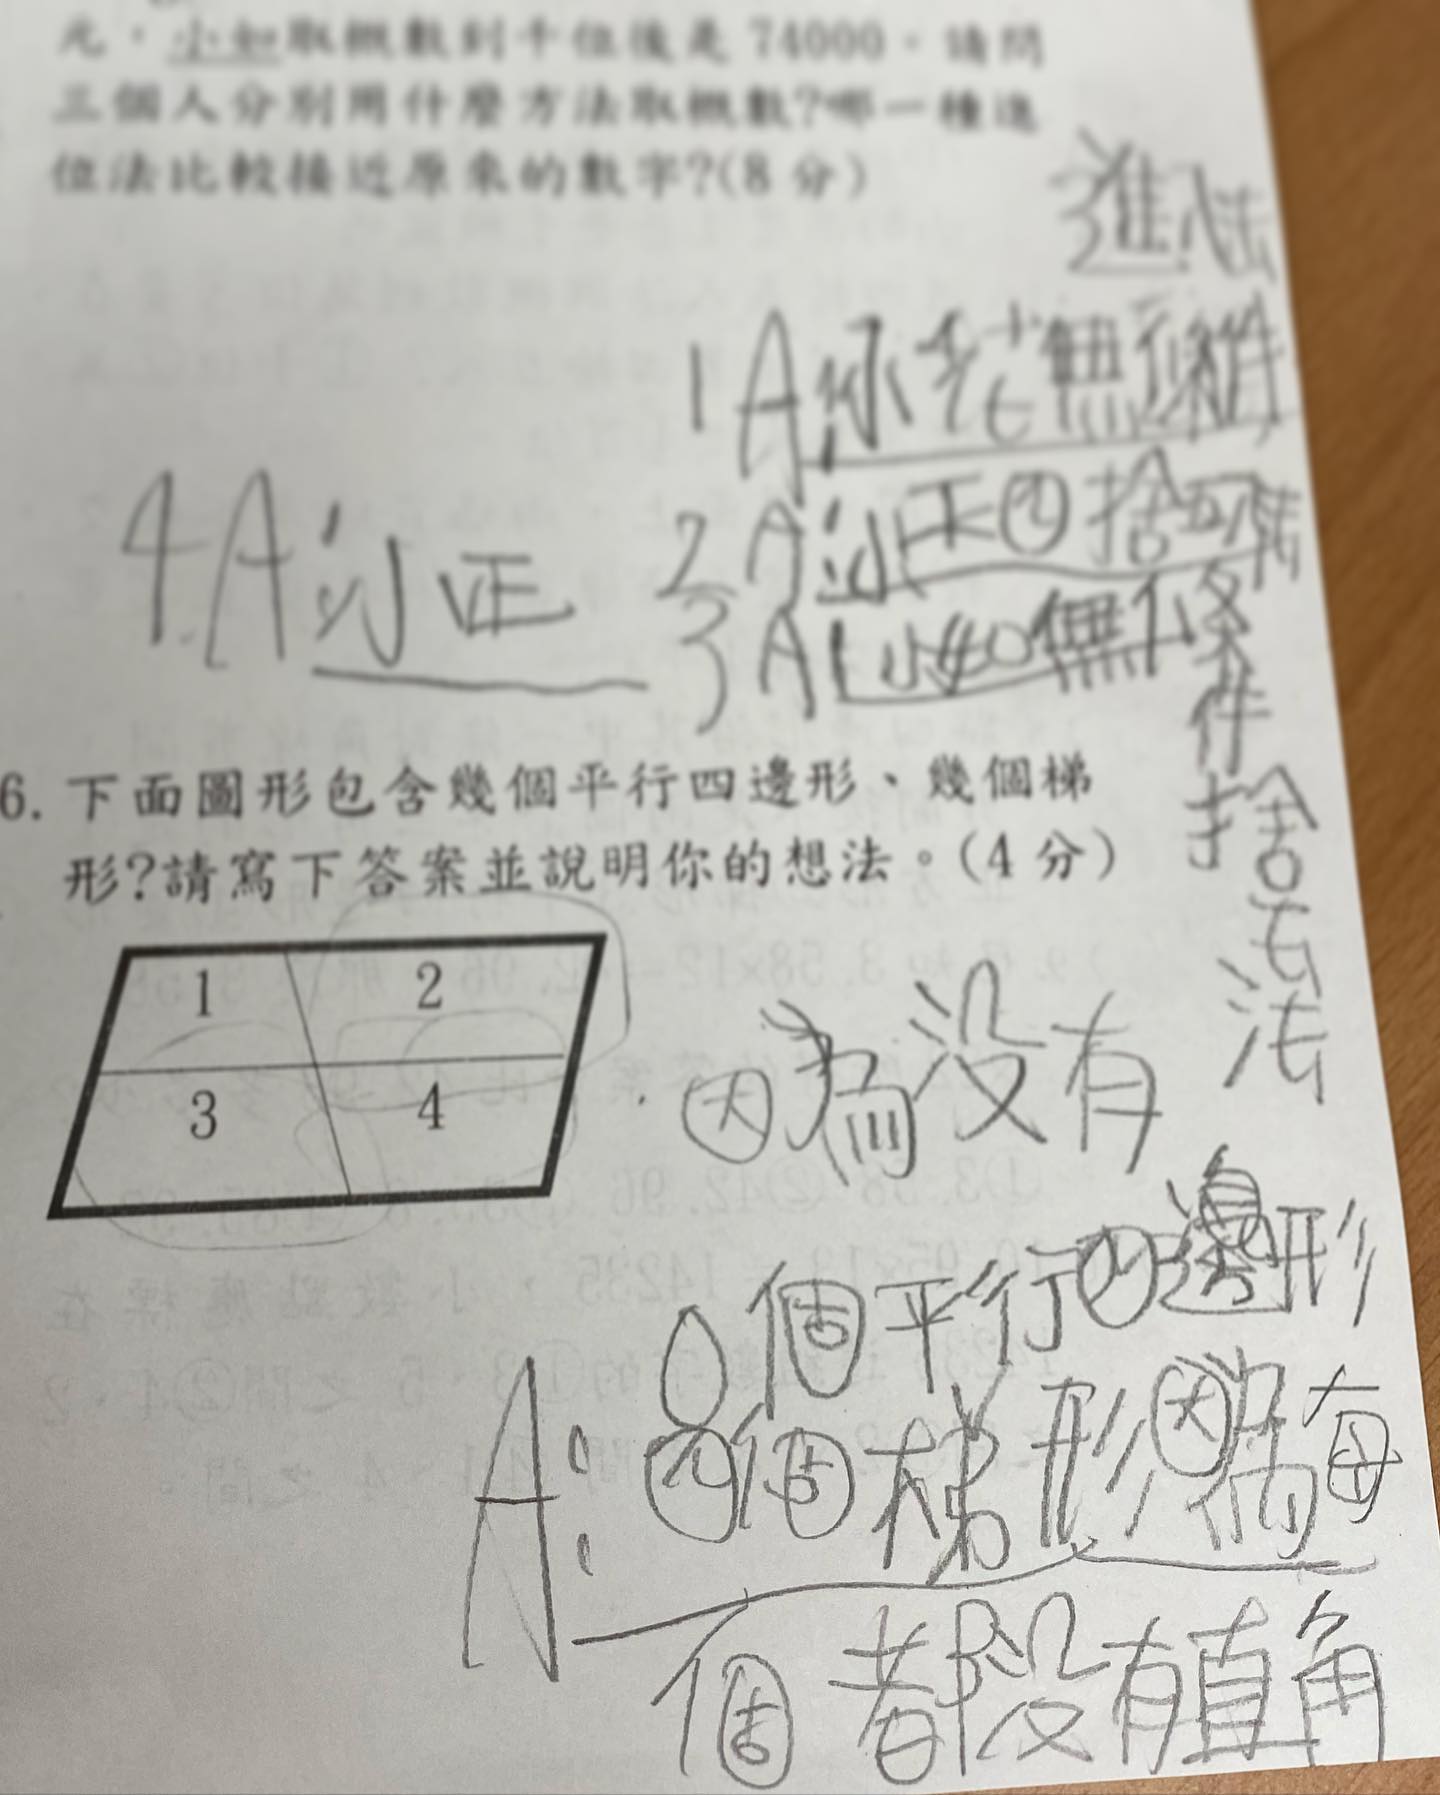 元，小如取概數到千位後是 74000。請問
三個人分別用什麼方法取概數?哪一種進
位法比較接近原來的數字?(8 分)
進入法
1A 無條件
4.A 小正
2A 小正四捨五入法
3A 小如無條件捨去法
6. 下面圖形包含幾個平行四邊形、幾個梯
形?請寫下答案並說明你的想法。(4 分)
1
2
3
4
因為沒有
A: 0個平行四邊形
四個梯形因為每
個都沒有直角